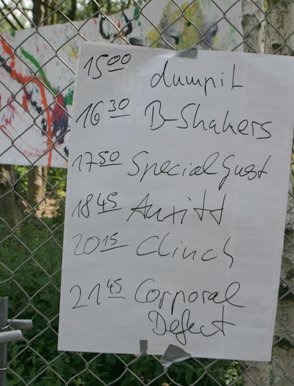 15⁰⁰ dumpiL
16³⁰ B-Shakers
17⁵⁰ Special Guest
18⁴⁵
20¹⁵ Clinch
21⁴⁵ Corporal
Defect